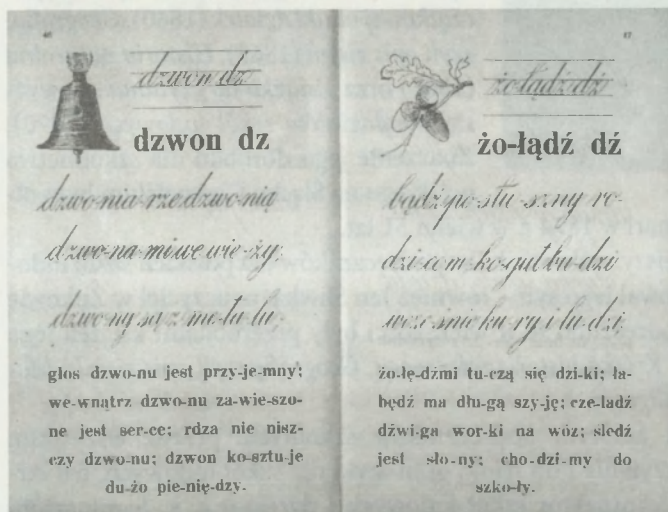 46
dzwon dz
dzwon dz
dzwo-nia-rze dzwo-nią
dzwo-na-mi we wie-ży;
dzwo-ny są z me-ta-lu;
głos dzwo-nu jest przy-je-mny;
we-wnątrz dzwo-nu za-wie-szo-
ne jest ser-ce; rdza nie nisz-
czy dzwo-nu; dzwon ko-sztu-je
du-żo pie-nię-dzy.
47
żo-łądź dź
żo-łądź dź
bądź po-słu-szny ro-
dzi-com ko-gut bu-dzi
wcze-śnie ku-ry i lu-dzi;
żo-łę-dźmi tu-czą się dzi-ki; ła-
będź ma dłu-gą szy-ję; cze-ladź
dźwi-ga wor-ki na wóz; śledź
jest sło-ny; cho-dzi-my do
szko-ły.